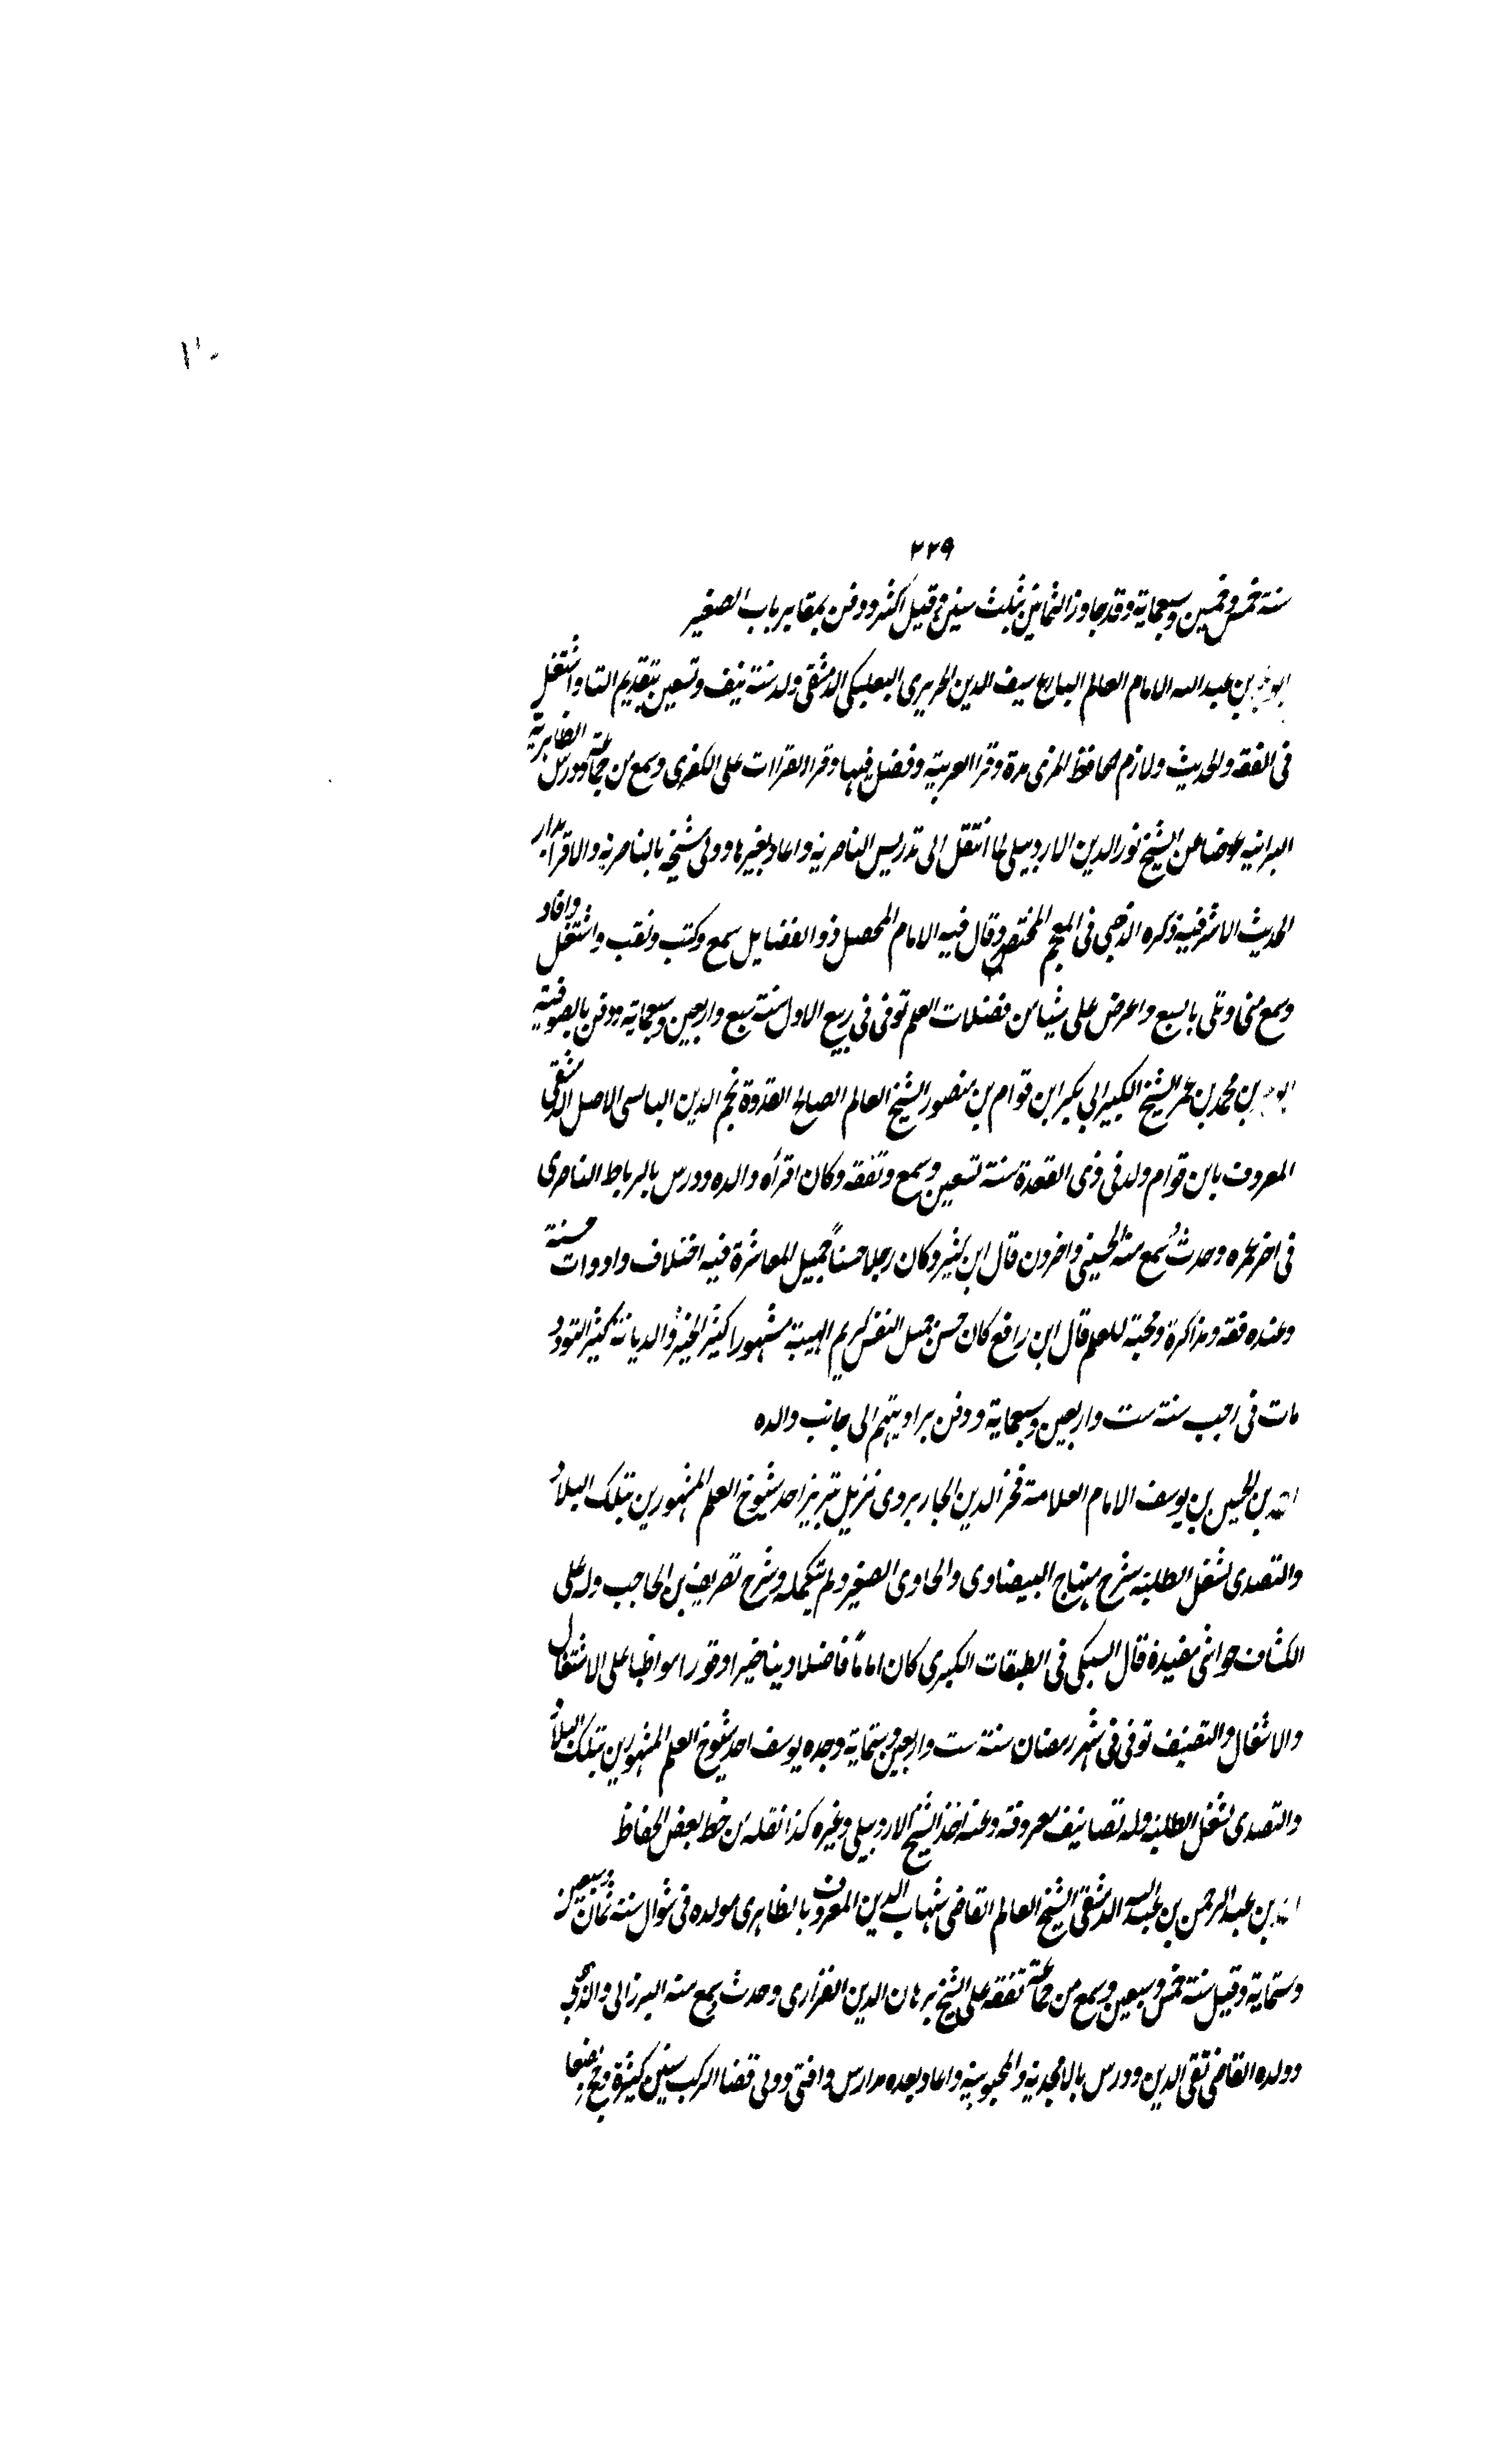 ٢٢٩
سنة خمس وخمسين وسبعماية وقد جاوز الثمانين بثلث سنين وقيل اكثر ودفن بمقابر باب الصغير
ابو بكر بن عبد الله الامام العالم البارع سيف الدين الحريرى البعلبكى الدمشقى ولد سنة نيف وتسعين بتقديم التا واشتغل
فى الفقه والحديث ولازم الحافظ المزى مدة وقرا العربية وفضل فيها وقرا القراات على الكفرى وسمع من جماعة ودرس الظاهرية
البرانية عوضا عن الشيخ نور الدين الاردبيلى لما انتقل الى تدريس الناصرية واعاد بغيرها وولى مشيخة بالناصرية والاقرا بدار
الحديث الاشرفية ذكره الذهبى فى المعجم المختص وقال فيه الامام المحصل ذو الفضايل سمع وكتب وتعب واشتغل وافاد
وسمع منى وتلى بالسبع واعرض على شيا من فضلات العلم توفى فى ربيع الاول سنة سبع واربعين وسبعماية ودفن بالصوفية
ابو بكر بن محمد بن عمر الشيخ الكبير ابى بكر ابن قوام بن منصور الشيخ العالم الصالح القدوة نجم الدين البالسى الاصل الدمشقى
المعروف بابن قوام ولد فى ذى القعدة سنة تسعين وسمع وتفقه وكان اقرأه والده ودرس بالرباط الناصرى
فى اخر عمره وحدث سمع منه الحسينى واخرون قال ابن كثير وكان رجلا حسنا جميل المعاشرة فيه اختلاف وادوات حسنة
وعنده فقه ومذاكرة ومحبة للعلم قال ابن رافع كان حسن جميل النفس كريم الهيبة مشهورا كثير الخير والديانة كثير التودد
مات فى رجب سنة ست واربعين وسبعماية ودفن بزاويتهم الى جانب والده
احمد بن الحسين بن يوسف الامام العلامة فخر الدين الجاربردى نزيل تبريز احد شيوخ العلم المشهورين بتلك البلاد
والتصدى لشغل الطلبة شرح منهاج البيضاوى والحاوى الصغير ولم يكمله وشرح تصريف بن الحاجب وله على
الكشاف حواشى مفيدة قال السبكى فى الطبقات الكبرى كان اماما فاضلا دينا خيرا وقورا مواظبا على الاشتغال
والاشغال والتصنيف توفى فى شهر رمضان سنة ست واربعين وستماية وجده يوسف احد شيوخ العلم المشهورين بتلك البلاد
والتصدى لشغل الطلبة وله تصانيف معروفة وعنه اخذ الشيخ الاردبيلى وغيره كذا نقله من خط بعض الحفاظ
احمد بن عبد الرحمن بن عبد الله الدمشقى الشيخ العالم القاضى شهاب الدين المعروف بالظاهرى مولده فى شوال سنة ثمان وسبعين
وستماية وقيل سنة خمس وسبعين وسمع من جماعة تفقه على الشيخ برهان الدين الفزارى وحدث سمع منه البرزالى والذهبى
وولده القاضى تقى الدين ودرس بالامجدية والمجنونية واعاد بعده مدارس وافتى وولى قضا الركب سنين كثيرة وحج بضعا